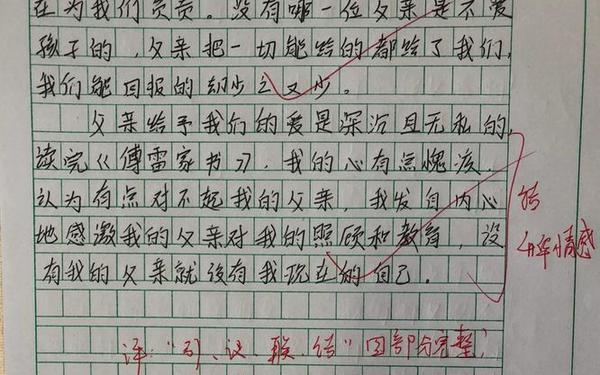 在为我们负责。没有哪一位父亲是不爱
孩子的，父亲把一切能给的都给了我们，
我们能回报的却少之又少。
父亲给予我们的爱是深沉且无私的，
读完《傅雷家书》，我的心有点愧疚，
认为有点对不起我的父亲，我发自内心
地感激我的父亲对我的照顾和教育，没
有我的父亲就没有我现在的自己。
结
升华情感
评："引、议、联、结"四部分完整；